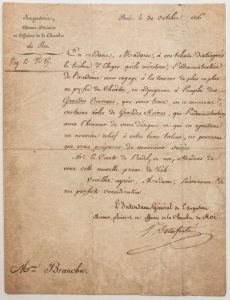 Argenterie,
Menus-Plaisirs
et Affaires de la Chambre
du Roi
Paris, le 30 Octobre 1816
En rendant, Madame, à vos talents distingués
le tribut d'éloges qu'ils méritent, l'administration
de l'académie vous engage à les tourner de plus en plus
au profit du Théâtre, en adjoignant à l'emploi des
Grandes Princesses, que vous tenez en ce moment,
certains rôles de Grandes Mères, que l'administration
aura l'honneur de vous désigner, et qui en ajoutant
un nouveau relief à votre beau talent, ne peuvent
que vous préparer de nouveaux succès.
Mr. le Comte de Pradel, en
cette nouvelle preuve de zèle.
Veuillez agréer, Madame, l'assurance de
ma parfaite considération.
L'Intendant Général de l'Argenterie
Menus plaisirs et affaires de la Chambre du Roi
Mme. Branchu